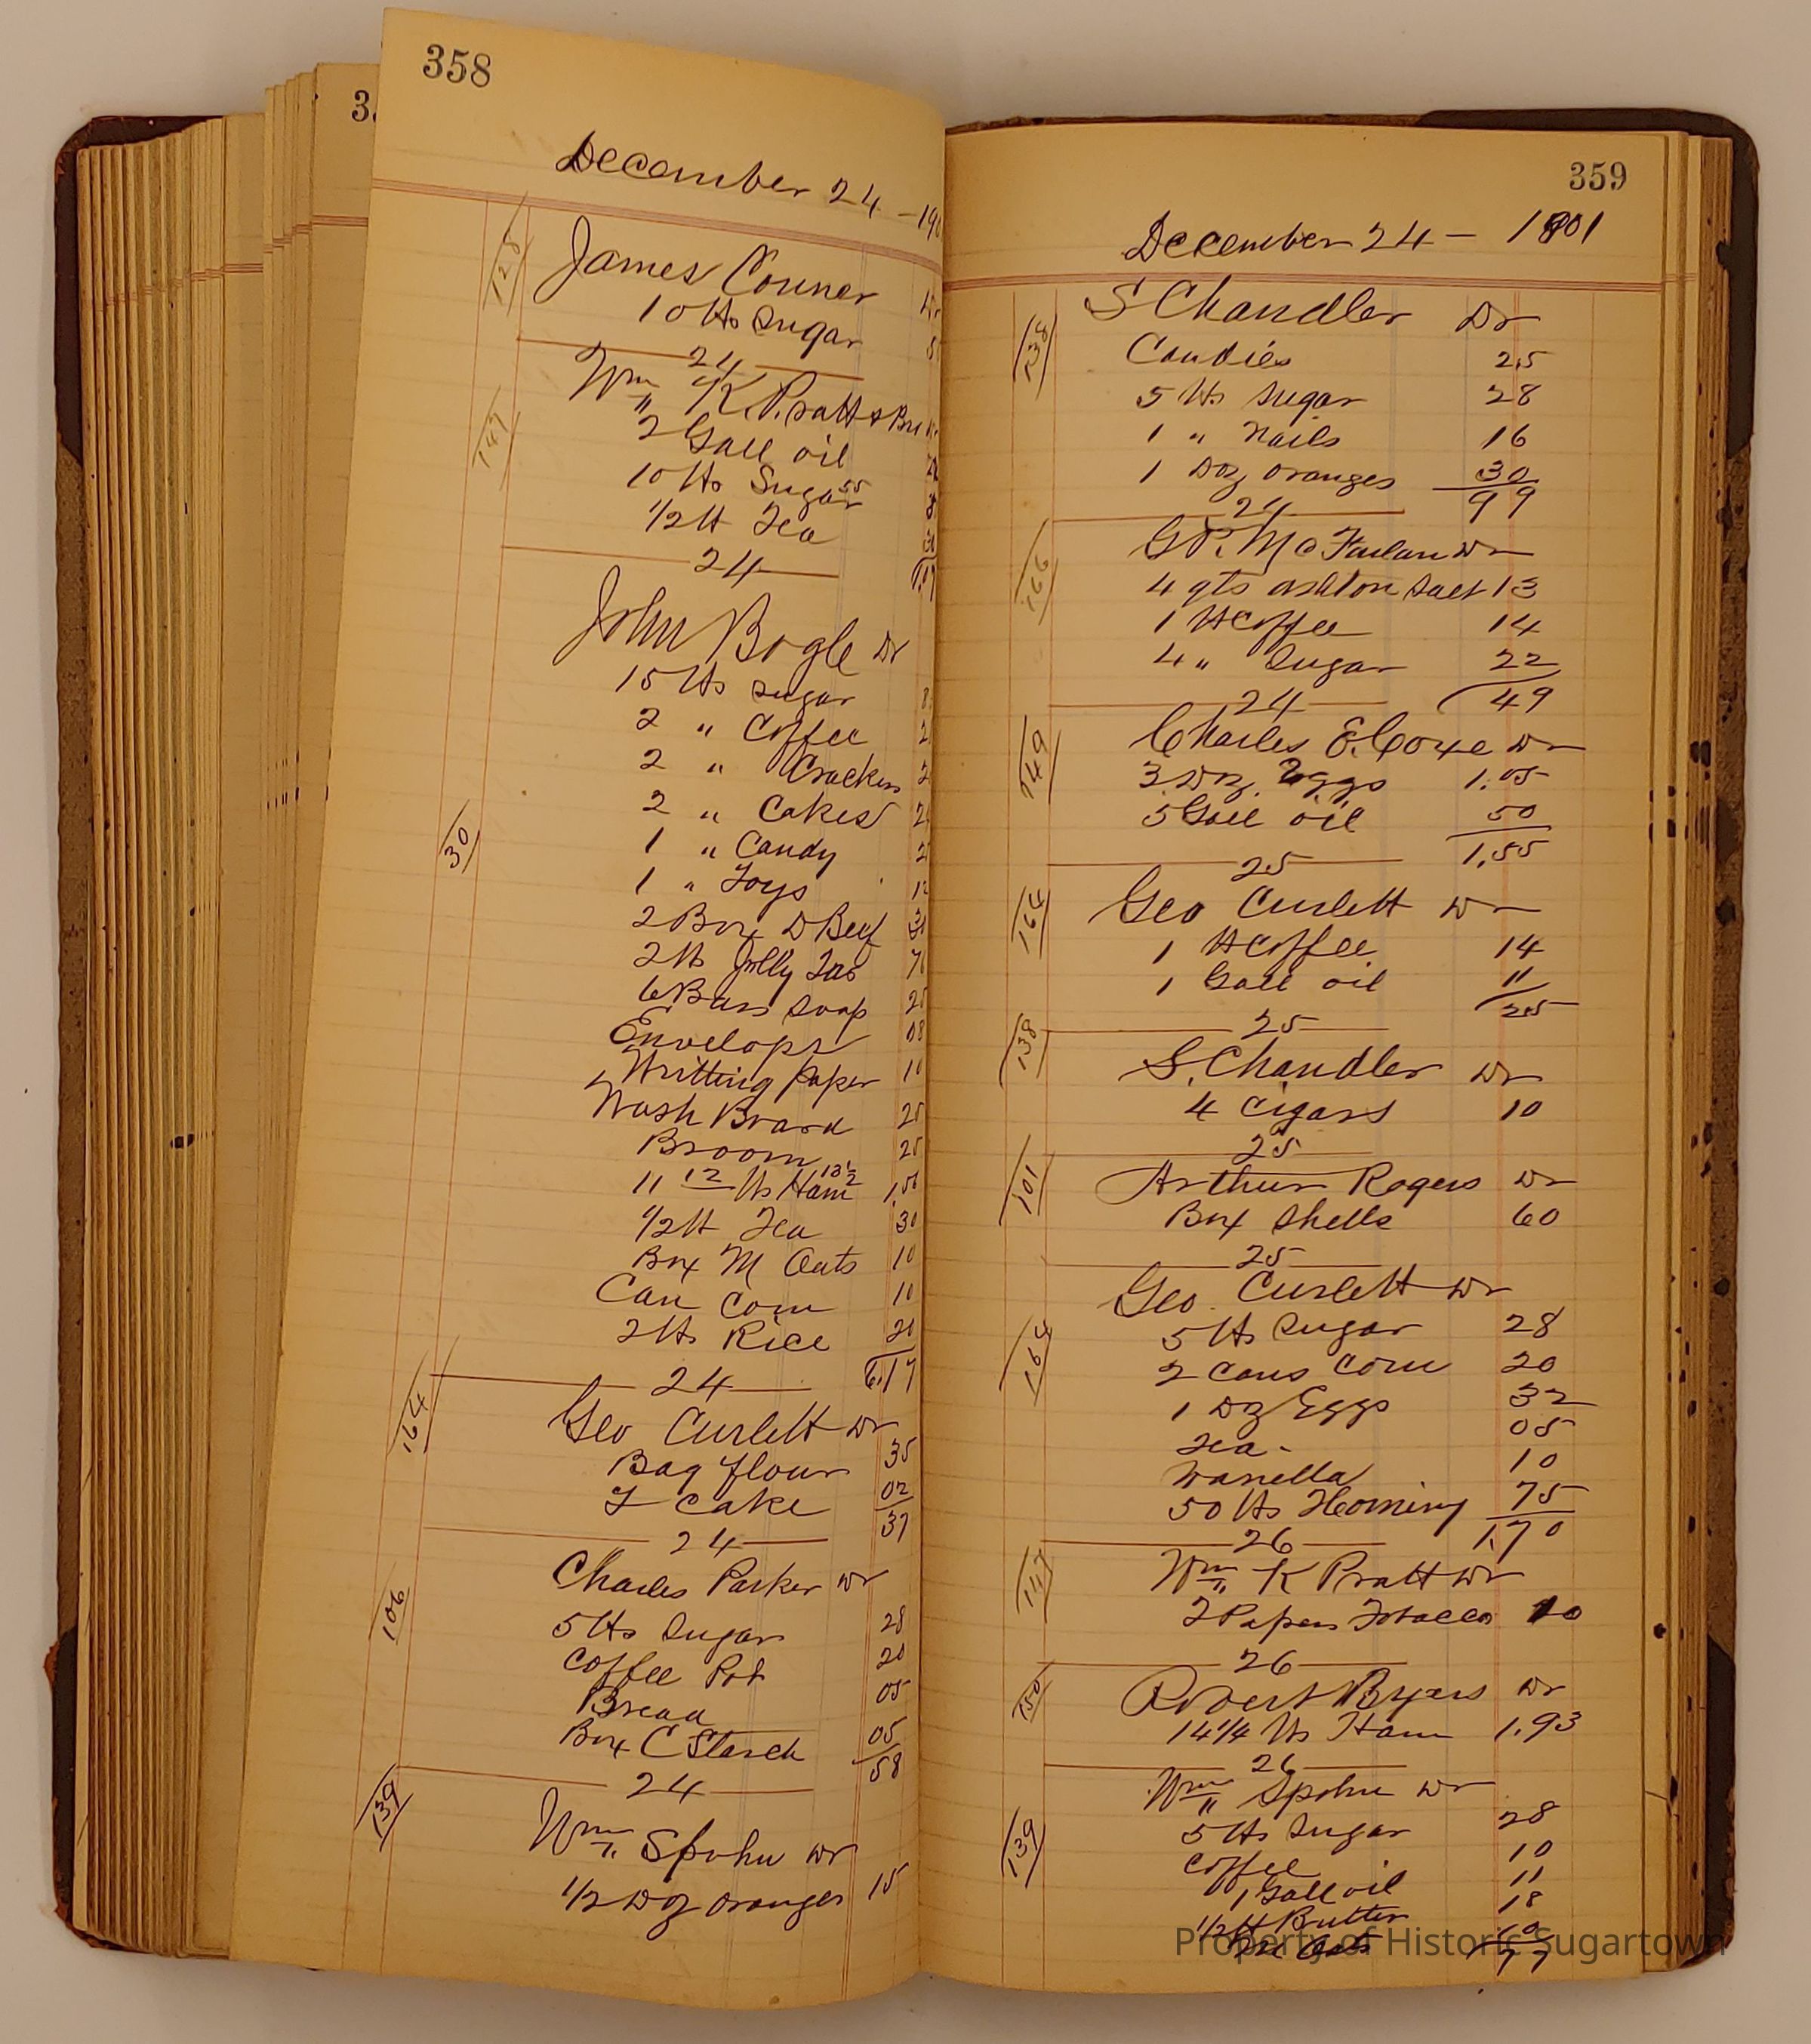 358
December 24 - 190
128
James Conner Dr
10 lbs Sugar
24
147
Wm K. Pratt & Bro
2 Gall oil
10 lbs Sugar 55
1/2 lb Tea
24
John Bogle Dr
15 lbs Sugar
2 " Coffee
2 " Crackers
2 " Cakes
30
1 " Candy
1 " Toys
2 Box D Beef
2 lb Jolly Tar
6 Bars Soap 25
Envelops 08
Writting Paper 10
Wash Board 25
Broom 25
11 12 lbs Ham 13 1/2 1.56
1/2 lb Tea 30
Box M Oats 10
Can Corn 10
2 lbs Rice 20
24 6.17
164
Geo Curlett Dr
Bag flour 35
Y Cake 02
37
24
106
Charles Parker Dr
5 lbs Sugar 28
Coffee Pot 20
Bread 05
Box C Starch 05
58
24
139
Wm Spohn Dr
1/2 Dz oranges 15
359
December 24 - 1901
138
S Chandler Dr
Candies 25
5 lbs Sugar 28
1 " Nails 16
1 Doz oranges 30
99
24
166
G P. McFarlan Dr
4 qts ashton Salt 13
1 lb Coffee 14
4 " Sugar 22
49
24
149
Charles E. Coxe Dr
3 Dz. Eggs 1.05
5 Gall oil 50
1.55
25
164
Geo Curlett Dr
1 lb Coffee 14
1 Gall oil 11
25
25
138
S. Chandler Dr
4 Cigars 10
25
101
Arthur Rogers Dr
Box Shells 60
25
Geo. Curlett Dr
164
5 lbs Sugar 28
2 Cans Corn 20
1 Dz Eggs 32
Tea - 05
Vanella 10
50 lbs Homing 75
1.70
26
147
Wm K Pratt Dr
2 Papers Tobacco 10
26
150
Robert Byers Dr
14 1/4 lbs Ham 1.93
26
Wm Spohn Dr
139
5 lbs Sugar 28
Coffee 10
1 Gall oil 11
1/2 lb Butter 18
Oats 10
77
Property of Historic Sugartown